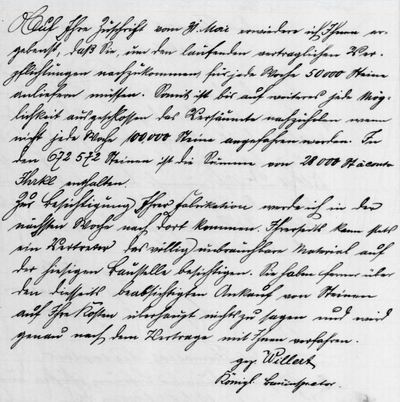 Auf Ihre Zuschrift vom 31. Mai erwidere ich Ihnen er-
gebenst, daß Sie, um den laufenden vertraglichen Ver-
pflichtungen nachzukommen, für jede Woche 50000 Steine
anliefern müssen. Somit ist bis auf weiteres jede Mög-
lichkeit ausgeschlossen das Versäumte nachzuholen wenn
nicht jede Woche 100,000 Steine angefahren werden. In
den 672572 Steinen ist die Summe von 28000 St à conto
enthalten.
Zur Besichtigung Ihrer Fabrikation werde ich in der
nächsten Woche nach dort kommen. Ihrerseits kann stets
ein Vertreter das völlig unbrauchbare Material auf
der hiesigen Baustelle besichtigen. Sie haben ferner über
den diesseits beabsichtigten Ankauf von Steinen
auf Ihre Kosten überhaupt nichts zu sagen und wird
genau nach dem Vertrage mit Ihnen verfahren.
gez. Willert
Königl. Bauinspector.